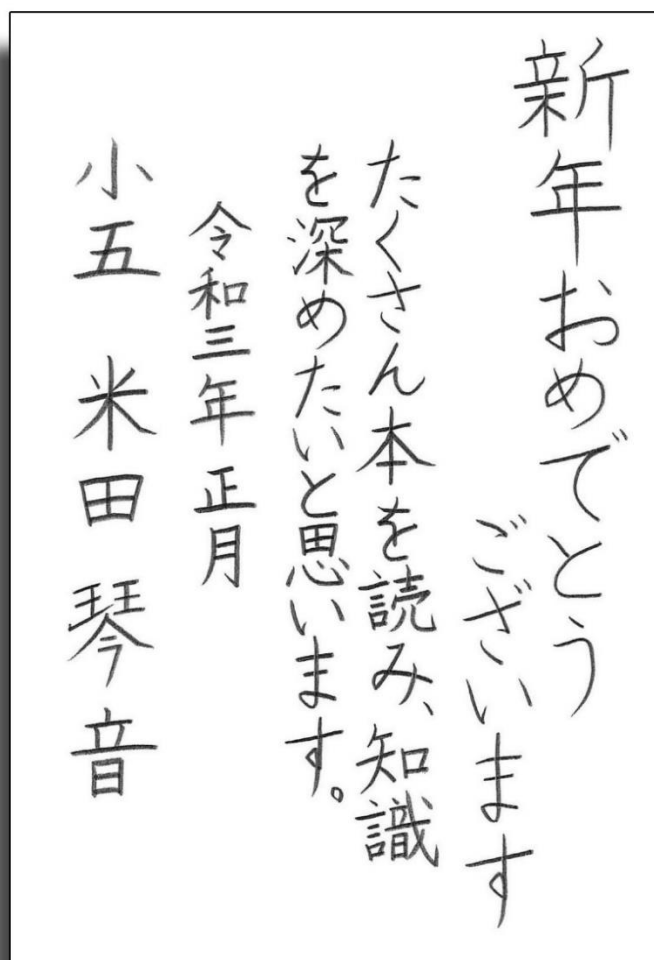 新年おめでとう
ございます
たくさん本を読み、知識
を深めたいと思います。
令和三年 正月
小五 米田 琴音